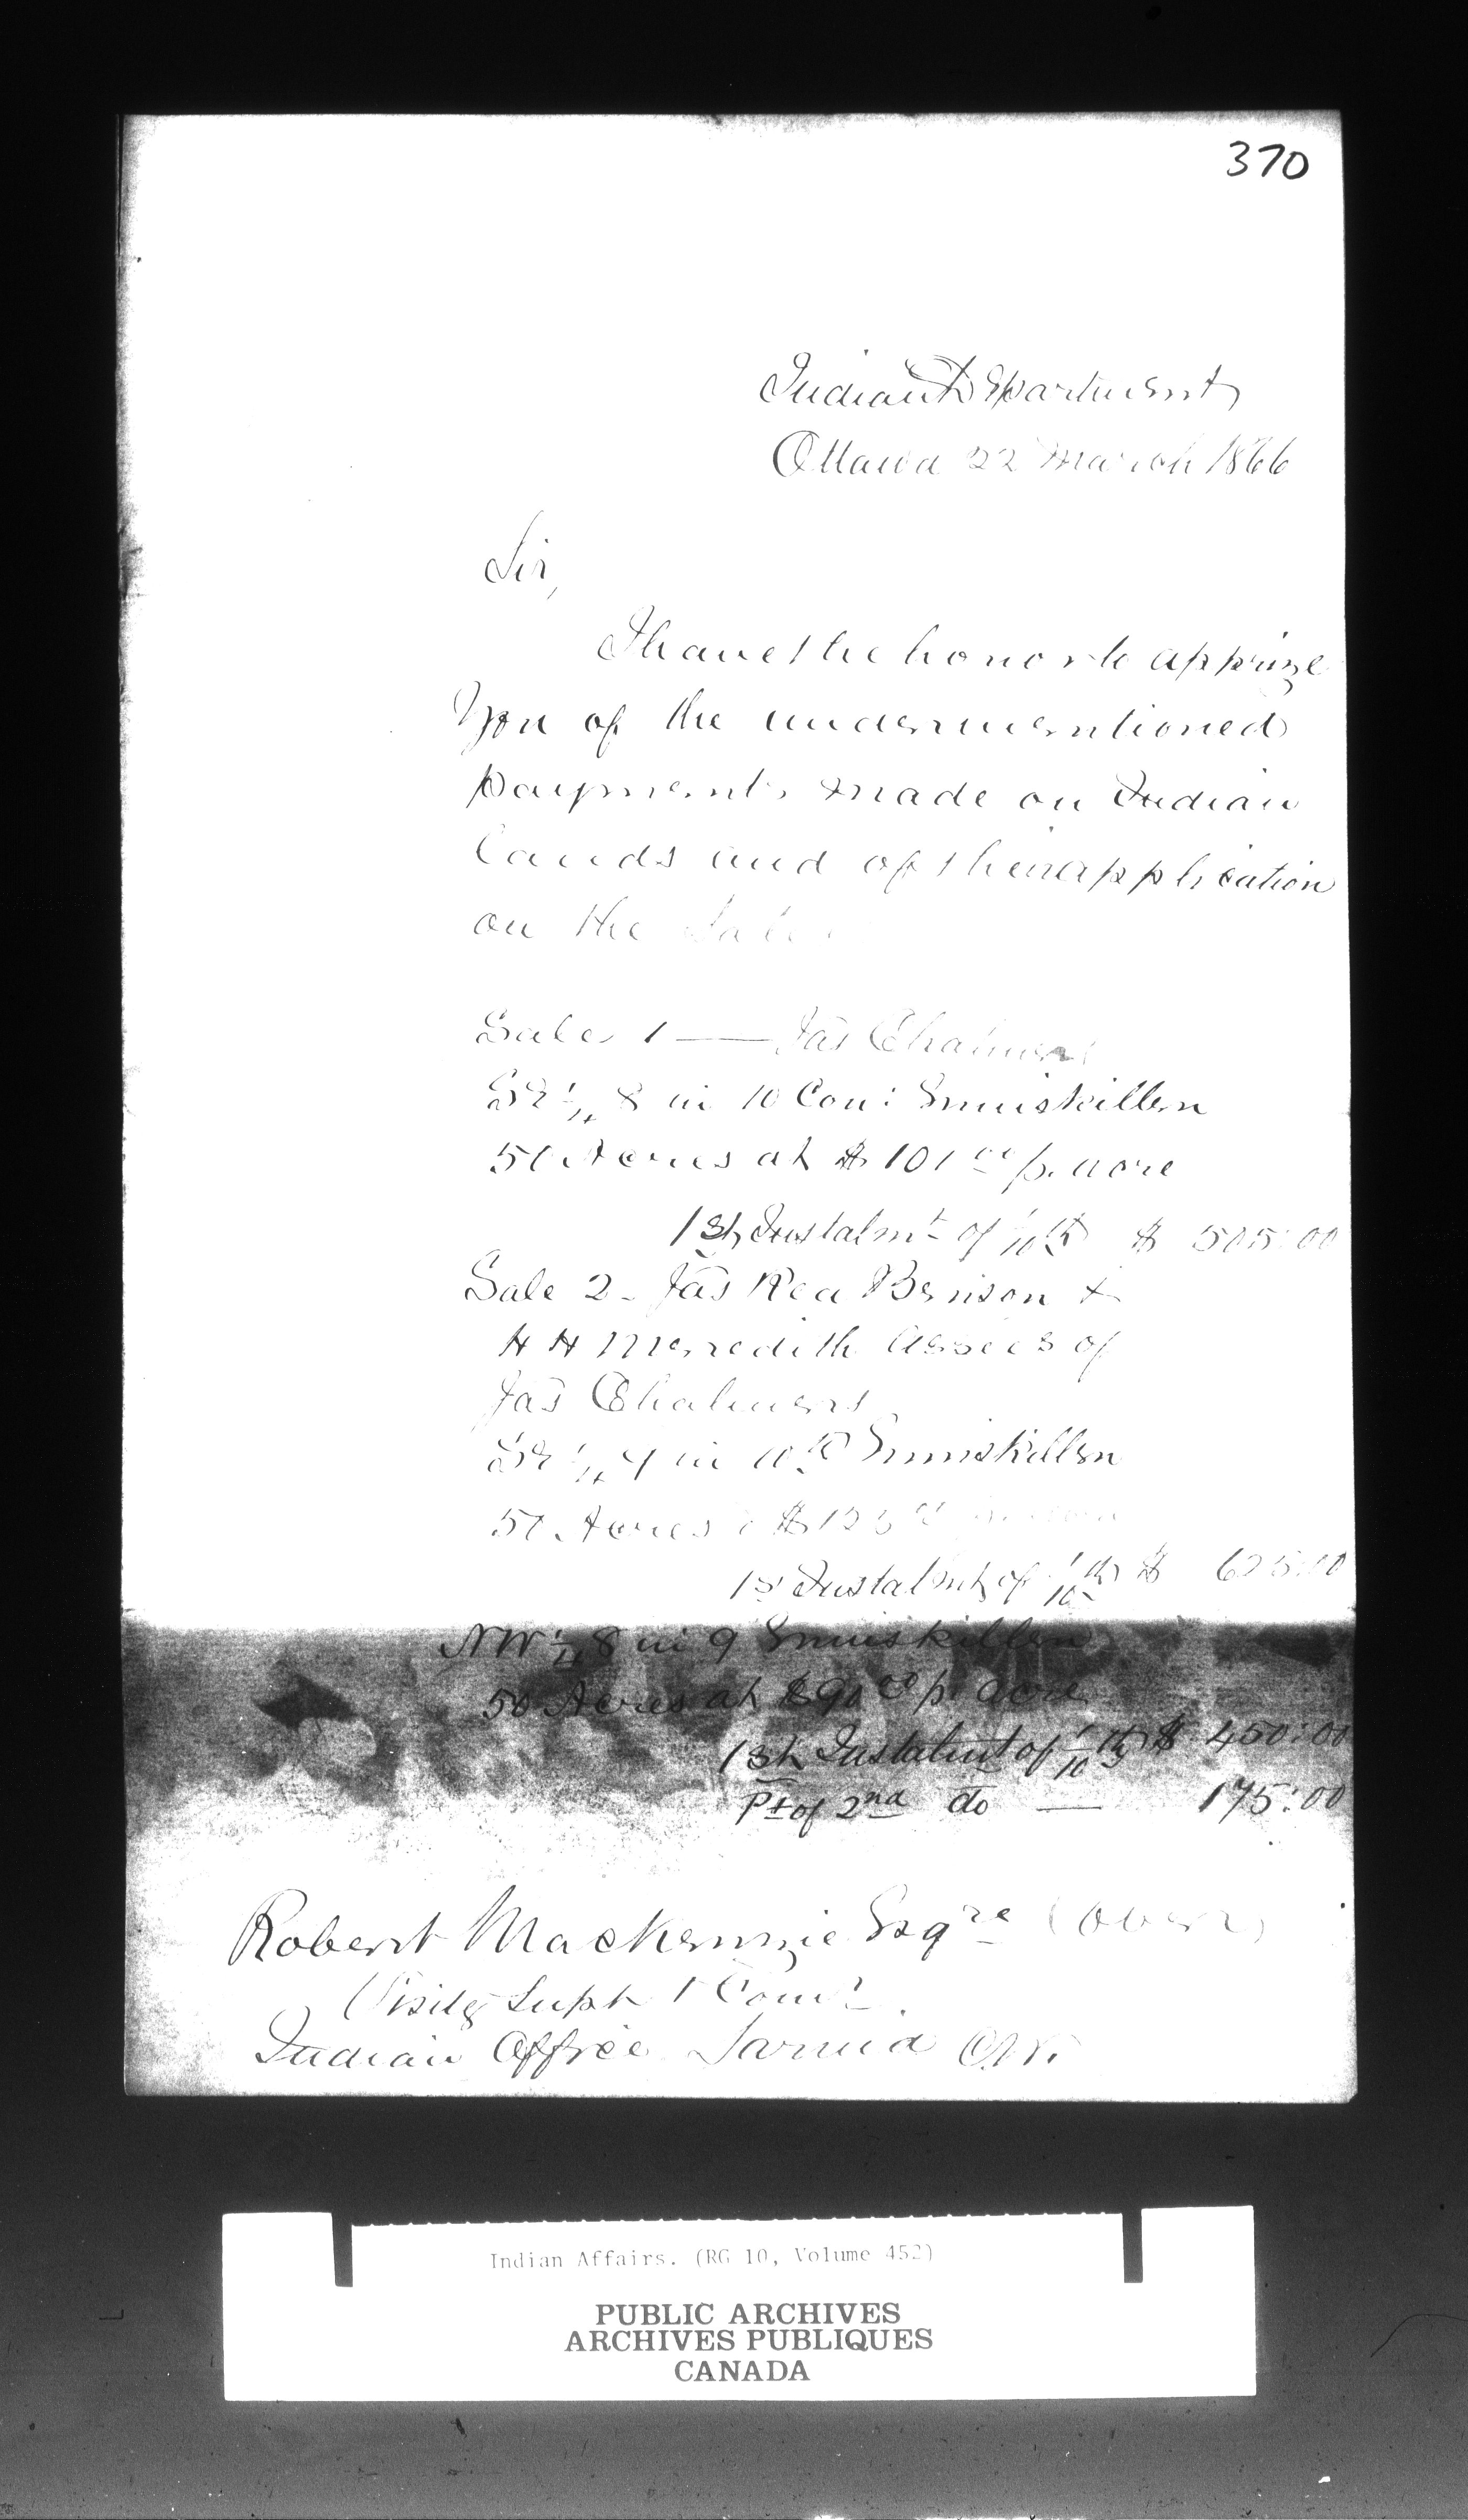 370
Indian Department
Ottawa 22 March 1866
Sir,
I have the honor to apprize
You of the undermentioned
payments made on Indian
Lands and of their application
on the Sale
Sale 1 — Jas Chalmers
SE 1/4 8 in 10 Con: Enniskillen
50 Acres at $101 00 p. acre
1st Instalmt of 1/10th $ 505:00
Sale 2 - Jas Rea Benson &
H H Meredith Assees of
Jas Chalmers
SE 1/4 4 in 10th Enniskillen
50 Acres $125
1st Instalmt of 1/10th $ 625:00
NW 1/4 8 in 9 Enniskillen
50 Acres at $90 00 p. acre
1st Instalmt of 1/10th $ 450:00
Pt of 2nd do — 175:00
Robert Mackenzie Esqre (over)
Visitg Supt & Comr.
Indian Office Sarnia C.W.
Indian Affairs. (RG 10, Volume 452)
PUBLIC ARCHIVES
ARCHIVES PUBLIQUES
CANADA